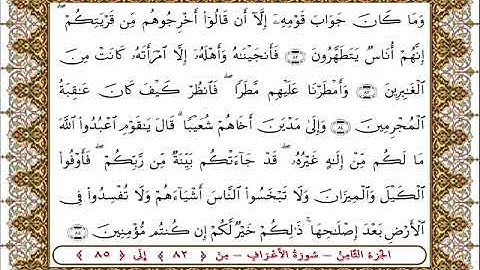 وَمَا كَانَ جَوَابَ قَوْمِهِۦٓ إِلَّآ أَن قَالُوٓا۟ أَخْرِجُوهُم مِّن قَرْيَتِكُمْ ۖ
إِنَّهُمْ أُنَاسٌ يَتَطَهَّرُونَ ﴿٨٢﴾ فَأَنجَيْنَٰهُ وَأَهْلَهُۥٓ إِلَّا ٱمْرَأَتَهُۥ كَانَتْ مِنَ
ٱلْغَٰبِرِينَ ﴿٨٣﴾ وَأَمْطَرْنَا عَلَيْهِم مَّطَرًا ۖ فَٱنظُرْ كَيْفَ كَانَ عَٰقِبَةُ
ٱلْمُجْرِمِينَ ﴿٨٤﴾ وَإِلَىٰ مَدْيَنَ أَخَاهُمْ شُعَيْبًا ۗ قَالَ يَٰقَوْمِ ٱعْبُدُوا۟ ٱللَّهَ
مَا لَكُم مِّنْ إِلَٰهٍ غَيْرُهُۥ ۖ قَدْ جَآءَتْكُم بَيِّنَةٌ مِّن رَّبِّكُمْ ۖ فَأَوْفُوا۟
ٱلْكَيْلَ وَٱلْمِيزَانَ وَلَا تَبْخَسُوا۟ ٱلنَّاسَ أَشْيَآءَهُمْ وَلَا تُفْسِدُوا۟ فِى
ٱلْأَرْضِ بَعْدَ إِصْلَٰحِهَا ۚ ذَٰلِكُمْ خَيْرٌ لَّكُمْ إِن كُنتُم مُّؤْمِنِينَ ﴿٨٥﴾
الجزء الثامن - سورة الأعراف - من ﴿ ٨٢ ﴾ إلى ﴿ ٨٥ ﴾